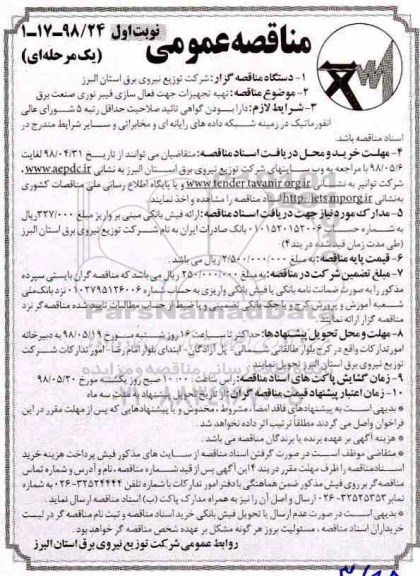 نوبت اول
۹۸/۲۴-۱۷-۱
(یک مرحله‌ای)
مناقصه عمومی
۱- دستگاه مناقصه گزار: شرکت توزیع نیروی برق استان البرز
۲- موضوع مناقصه: تهیه تجهیزات جهت فعال سازی فیبر نوری صنعت برق
۳- شرایط لازم: دارا بودن گواهی تائید صلاحیت حداقل رتبه ۵ شورای عالی
انفورماتیک در زمینه شبکه داده های رایانه ای و مخابراتی و سایر شرایط مندرج در
اسناد مناقصه باشد.
۴- مهلت خرید و محل دریافت اسناد مناقصه: متقاضیان می توانند از تاریخ ۹۸/۰۴/۳۱ لغایت
۹۸/۰۵/۶ با مراجعه به وب سایتهای شرکت توزیع نیروی برق استان البرز به نشانی www.aepdc.ir
شرکت توانیر به نشانی www.tender.tavanir.org.ir و یا پایگاه اطلاع رسانی ملی مناقصات کشوری
به نشانی http://iets.mporg.ir اسناد مناقصه را مشاهده و اخذ نمایند.
۵- مدارک مورد نیاز جهت دریافت اسناد مناقصه: ارائه فیش بانکی مبنی بر واریز مبلغ ۳۲۷/۰۰۰ ریال
به شماره حساب ۰۱۰۱۵۲۰۱۵۲۰۰۶ بانک صادرات ایران به نام شرکت توزیع نیروی برق استان البرز
(طی مدت زمان قید شده در بند ۴)
۶- قیمت پایه مناقصه: به مبلغ ۲/۵۰۰/۰۰۰/۰۰۰ ریال می باشد.
۷- مبلغ تضمین شرکت در مناقصه: به مبلغ ۲۵۰/۰۰۰/۰۰۰ ریال می باشد که مناقصه گران بایستی سپرده
مذکور را به صورت ضمانت نامه بانکی یا فیش بانکی واریزی به حساب شماره ۰۱۰۲۷۹۵۱۲۶۰۰۶ نزد بانک ملی
شعبه آموزش و پرورش کرج و یا چک بانکی تضمینی و یا ضبط از حساب مطالبات تایید شده مناقصه گر نزد
مناقصه گزار ارائه نمایند.
۸- مهلت و محل تحویل پیشنهادها: حداکثر تا ساعت ۱۶ روز شنبه مورخ ۹۸/۰۵/۱۹ به دبیرخانه
امور تدارکات واقع در کرج بلوار طالقانی شمالی - پل آزادگان - ابتدای بلوار امام رضا - امور تدارکات شرکت
توزیع نیروی برق استان البرز تحویل نمایند.
۹- زمان گشایش پاکت های اسناد مناقصه: راس ساعت ۱۰:۰۰ صبح روز یکشنبه مورخ ۹۸/۰۵/۲۰
۱۰- زمان اعتبار پیشنهاد قیمت مناقصه گران: از تاریخ تحویل پیشنهاد به مدت سه ماه
* بدیهی است به پیشنهادهای فاقد امضا، مشروط، مخدوش و یا پیشنهادهایی که پس از مهلت مقرر در این
فراخوان واصل می گردند مطلقا ترتیب اثر داده نخواهد شد.
* هزینه آگهی بر عهده برنده یا برندگان مناقصه می باشد.
* متقاضی موظف است در صورت گرفتن اسناد مناقصه از سایت های مذکور فیش پرداخت هزینه خرید
اسناد مناقصه را ظرف مهلت مقرر در بند ۴ این آگهی پس از قید شماره مناقصه، نام و آدرس و شماره تماس
مناقصه گر بر روی فیش مذکور ضمن هماهنگی با دفتر امور تدارکات با شماره تلفن ۳۲۵۲۴۴۴۴-۰۲۶ به شماره
نمابر ۳۲۵۲۵۳۵۳-۰۲۶ ارسال و اصل آن را نیز به همراه مدارک پاکت (ب) اسناد مناقصه ارسال نماید.
* بدیهی است در صورت عدم ارسال یا تحویل فیش بانکی خرید اسناد مناقصه و ثبت نام مناقصه گر در لیست
خریداران اسناد مناقصه، مسئولیت بروز هر گونه مشکل بر عهده شخص مناقصه گر خواهد بود.
روابط عمومی شرکت توزیع نیروی برق استان البرز